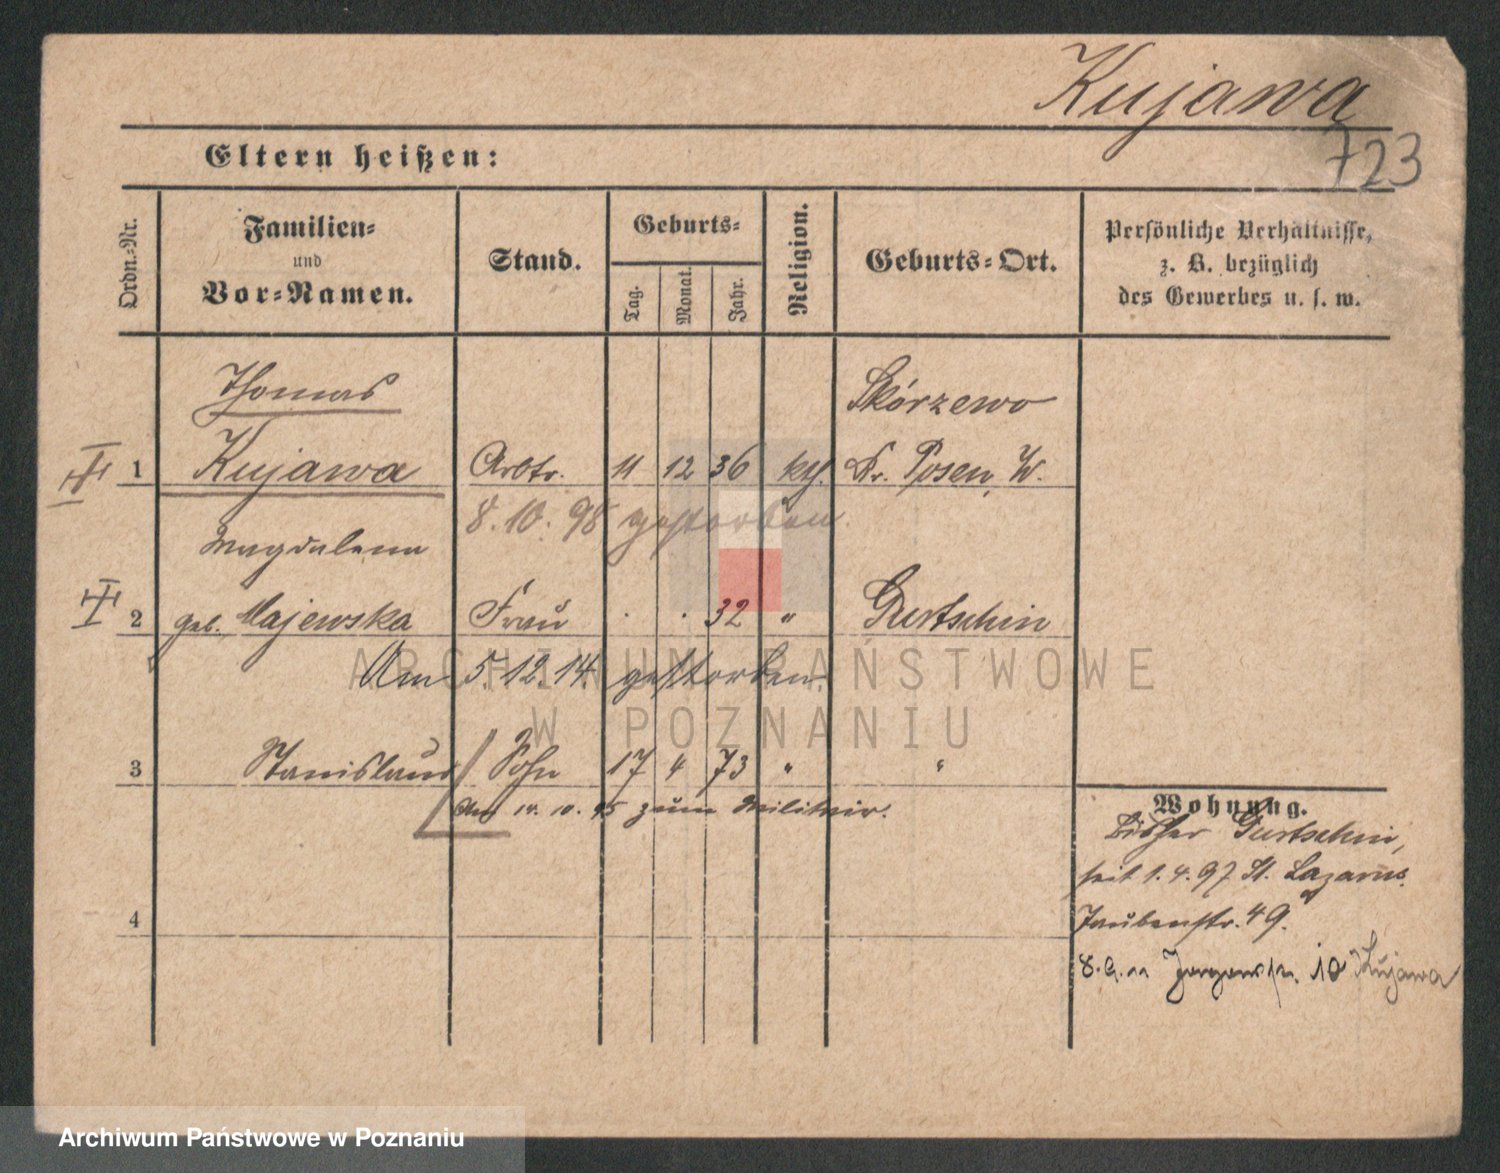 Kujawa
723
Eltern heißen:
Ordn.-Nr.
Familien-
und
Vor-Namen.
Stand.
Geburts-
Tag.
Monat.
Jahr.
Religion.
Geburts-Ort.
Persönliche Verhältnisse,
z. B. bezüglich
des Gewerbes u. s. w.
Thomas Skórzewo
1 Kujawa Arbtr. 11 12 36 kth. Kr. Posen, W.
8.10.98 gestorben.
Magdalena
2 geb. Majewska Frau . . 32 " Gurtschin
Am 5.12.14. gestorben.
3 Stanislaus Sohn 17 4 73 " "
Am 14.10.95 zum Militair.
4
Wohnung.
Bisher Gurtschin,
seit 1.4.97 St. Lazarus.
Taubenstr. 49.
10 Kujawa
ARCHIWUM PAŃSTWOWE
W POZNANIU
Archiwum Państwowe w Poznaniu